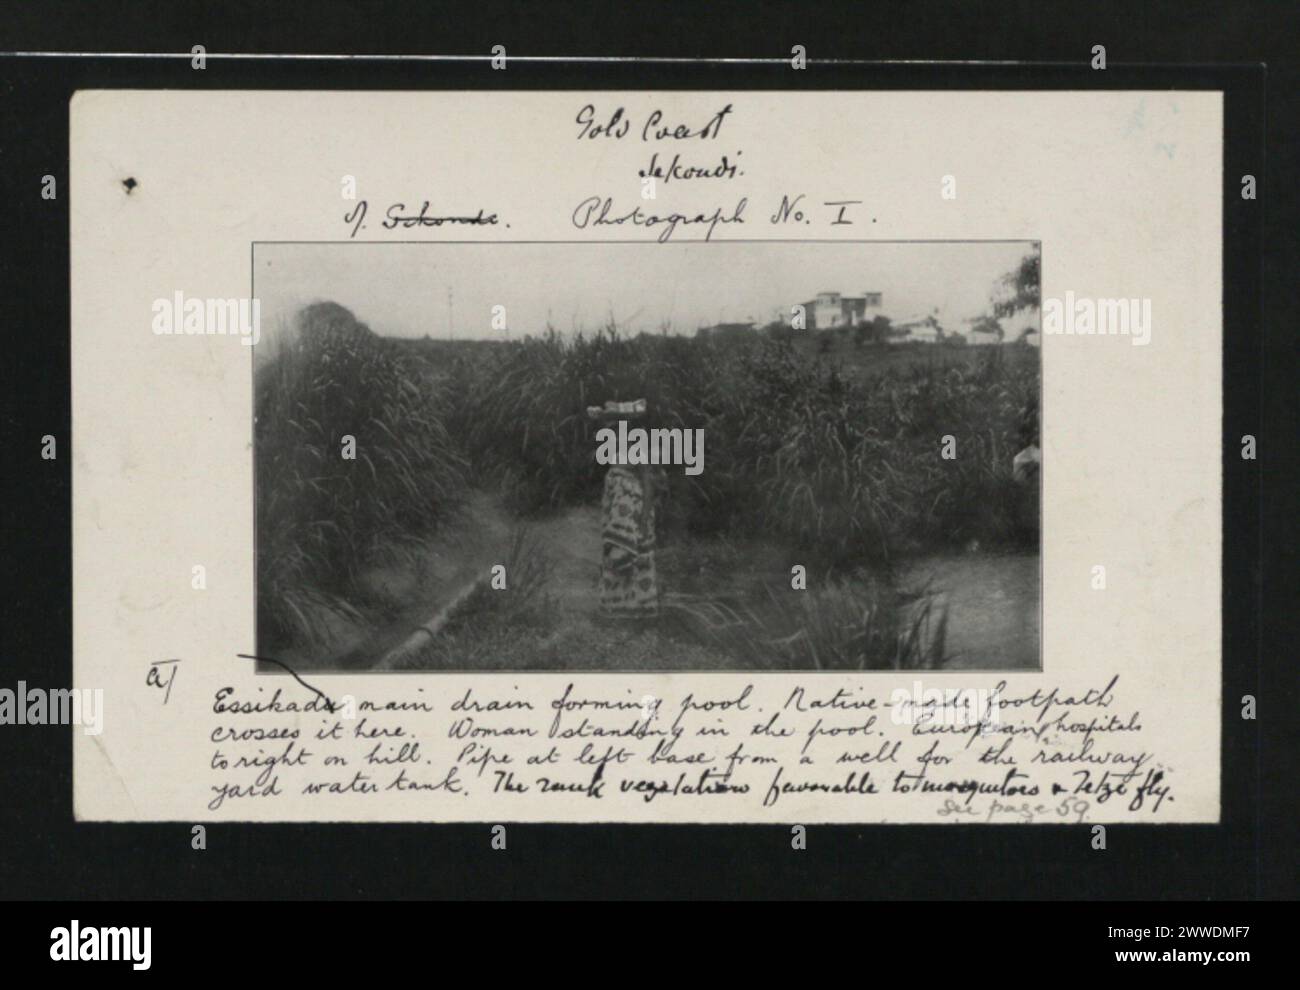 Gold Coast
Sekondi.
1). Sekonde. Photograph No. I.
a)
Essikadu main drain forming pool. Native-made footpath
crosses it here. Woman standing in the pool. European hospitals
to right on hill. Pipe at left base from a well for the railway
yard water tank. The rank vegetation favorable to mosquitoes & Tetze fly.
See page 59.
alamy
Image ID: 2WWDMF7
www.alamy.com